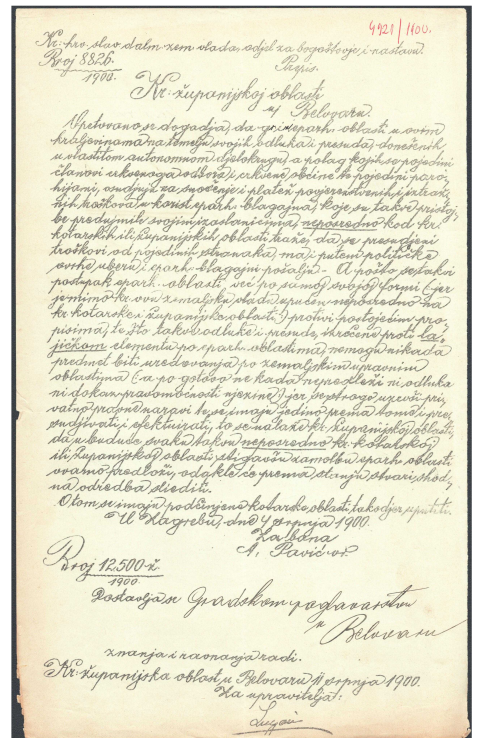 4921/1900.
Kr. hrv. slav. dalm. zem. vlada, odjel za bogoštovje i nastavu.
Broj 8826.
1900.
Prepis.
Kr. županijskoj oblasti
u Belovaru.
Opetovano se dogadja, da eparh. oblasti u ovim
kraljevinama na temelju svojih odluka i presuda, donešenih
u vlastitom autonomnom djelokrugu, a polag kojih su pojedini
članovi crkvenoga odbora i crkvene obćine ko pojedini paro-
hijani, osudjeni na snošenje i platež povjerenstvenih i iztraž-
nih troškova u korist eparh. blagajna, koje su takve pristoj-
be predujmile svojim izaslanicima, neposredno kod kr.
kotarskih ili županijskih oblasti traže, da se presudjeni
troškovi od pojedinih stranaka, ma i putem političke
ovrhe uberu i eparh. blagajni pošalju. - A pošto se takvi
postupak eparh. oblasti, već po samoj svojoj formi (jer
je mimo kr. ovu zemaljsku vladu upućen neposredno na
kr. kotarske i županijske oblasti) protivi postojećim pro-
pisima, te što takove odluke i presude, stvorene proti la-
jičkom elementu po eparh. oblastima, nemogu nikada
predmet biti uredovanja po zemaljskim upravnim
oblastima (a po gotovo ne kada nepodleži ni odluka
ni dokaz pravomoćnosti njezine) jer se strogo uzevši pri-
vatno pravne naravi te se imaju jedino prema tomu pre-
sudjivati i efektuirati, to se nalaže kr. županijskoj oblasti,
da u buduće svaku takvu neposredno kr. kotarskoj
ili županijskoj oblasti stigavšu zamolbu eparh. oblasti
ovamo predloži, odakle će prema stanju stvari shod-
na odredba slediti.
O tom se imaju područne kotarske oblasti takodjer uputiti.
U Zagrebu, dne 4 srpnja 1900.
Za bana
Pavić vr.
Broj 12.500 ž.
1900.
Dostavlja se Gradskom poglavarstvu
u
Belovaru
znanja i ravnanja radi.
Kr. županijska oblast u Belovaru 11 srpnja 1900.
Za upravitelja: